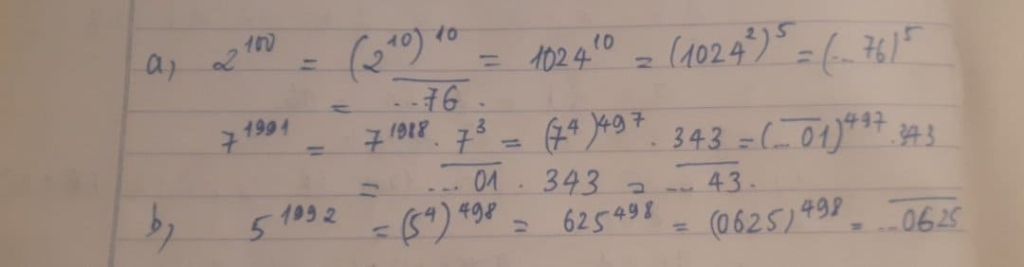 a, 2^100 = (2^10)^10 = 1024^10 = (1024^2)^5 = (...76)^5
= \overline{...76}.
7^1991 = 7^1988 . 7^3 = (7^4)^497 . 343 = (\overline{...01})^497 . 343
= \overline{...01} . 343 = \overline{...43}.
b, 5^1992 = (5^4)^498 = 625^498 = (0625)^498 = \overline{...0625}